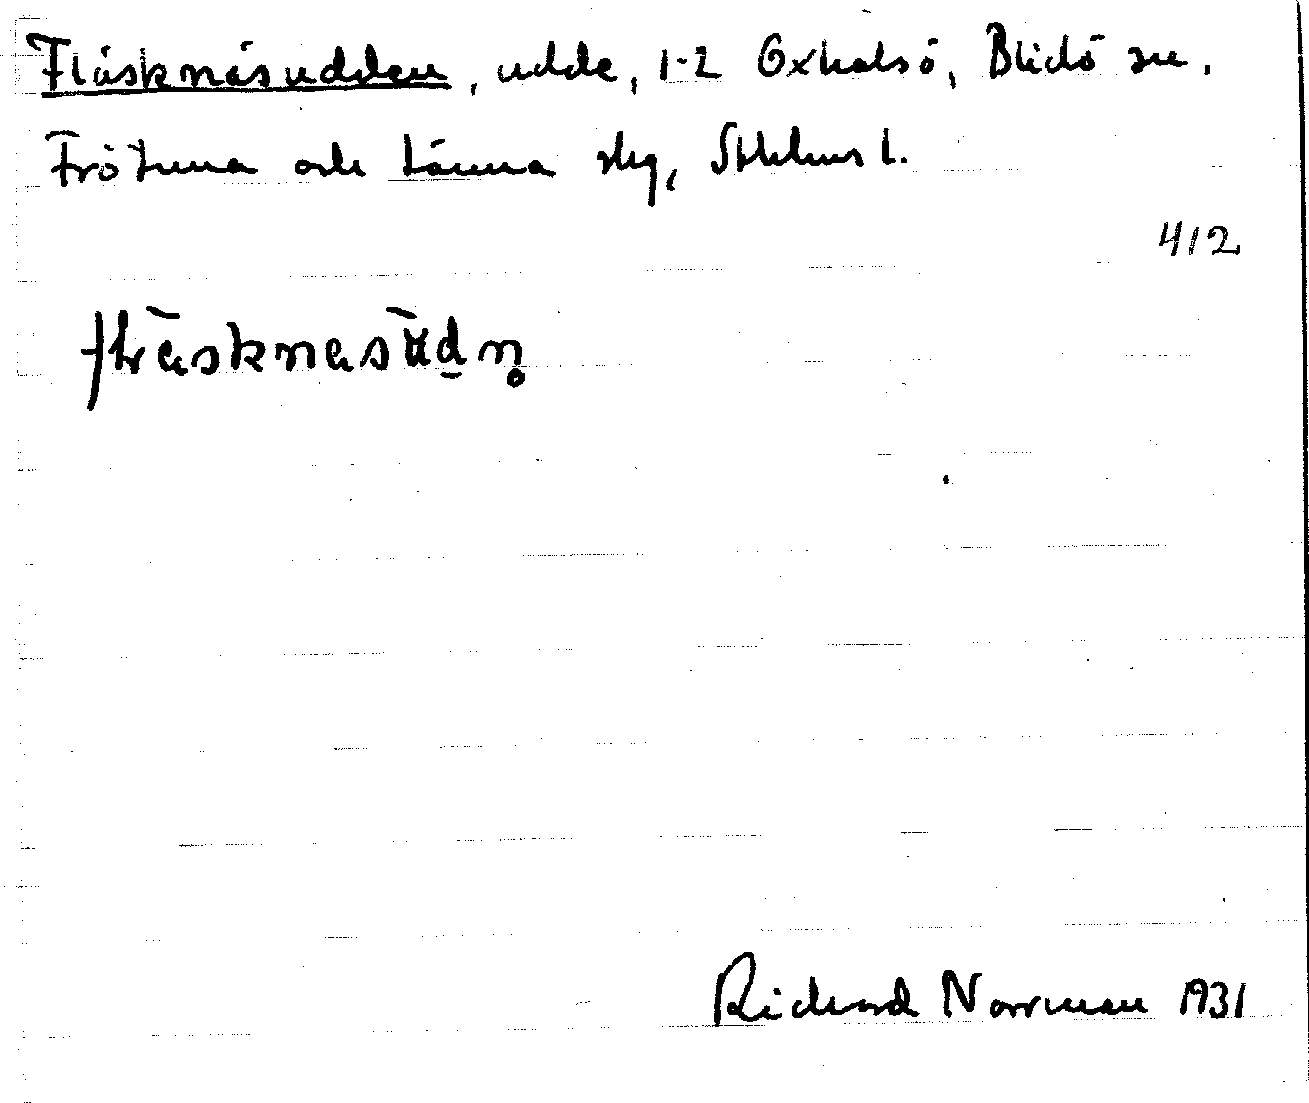 Fläsknäsudden, udde, 1-2 Oxhalsö, Blidö sn.
Frötuna och Länna slg, Sthlms l.
412
Richard Norrman 1931